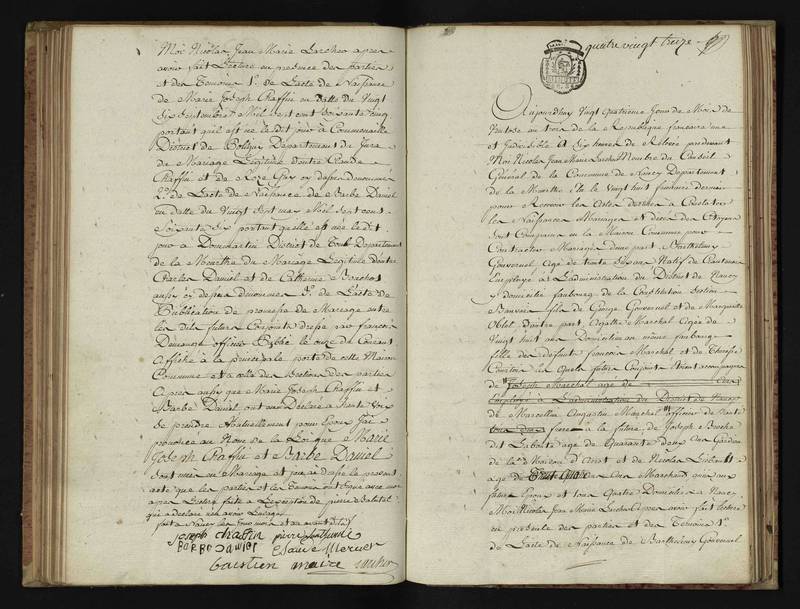 Moi Nicolas Jean Marie Larcher apres
avoir fait Lecture en presence des parties
et des Temoins 1° de L'acte de Naissance
de Marie Joseph Chaffin en datte du vingt
Six Septembre Mil Sept cent Soixante cinq
portant qu'il est né le dit jour à
District de Département du Jura
de Mariage Legitime d'entre Claude
Chaffin et de Roze Guy
2° de L'acte de Naissance de Barbe Daniel
en datte du vingt Sept may Mil Sept cent
Soixante Six portant qu'elle est née le dt
jour à Dommartin District de Toul Département
de la Meurthe du Mariage Legitime d'entre
Charles Daniel et de Catherine
3° de L'acte de
Publication de promesse de Mariage entre
les dits futurs Conjoints dressé par françois
officier Public le onze du Courant
affiché à la principale porte de cette Maison
Commune et à celle des Sections des parties
apres aussy que Marie Joseph Chaffin et
Barbe Daniel ont eu Declaré à haute voix
Se prendre Mutuellement pour Epoux J'ai
prononcé au Nom de la Loi que Marie
Joseph Chaffin et Barbe Daniel
Sont unis en Mariage et j'ai redigé le present
acte que les parties et les temoins ont Signé avec moi
apres Lecture faite à L'exception de pierre
qui a declaré n'en avoir L'usage
fait à Nancy les jour mois et an avant dits
joseph chaffin pierre
BARBE DANIEL Claude Mercier
bastien maire Larcher
quatre vingt treize
Aujourd'huy vingt quatrieme Jour du Mois de
Ventose an trois de la Republique francaise une
et Indivisible à Six heures de Relevée pardevant
Moi Nicolas Jean Marie Larcher Membre du Conseil
Général de la Commune de Nancy Departement
de la Meurthe Elu le vingt huit
pour Recevoir les Actes destinés à Constater
les Naissances Mariages et deces des Citoyens
Sont Comparus en la Maison Commune pour
Contracter Mariage d'une part Barthelemy
Gouvernel agé de trente Six ans Natif de
Employé à L'administration du District de Nancy
y domicilié faubourg de la Constitution Section
fils de George Gouvernel et de Marguerite
d'autre part Agathe Marchal Agée de
vingt huit ans Domiciliée au même faubourg
fille des defunts francois Marchal et de Therese
Les quels futurs Conjoints Etoient accompagnés
de Joseph Marchal agé de ans
Employé à L'administration du District de Nancy
de Marcellin Augustin Marchal officier de Santé
frere à la future de Joseph
dit agé de Quarante deux ans Gardien
de la Maison d'arret et de Nicolas
agé de ans Marchand amis au
futur Epoux et tous Quatre Domiciliés à Nancy
Moi Nicolas Jean Marie Larcher apres avoir fait lecture
en presence des parties et des Temoins 1°
de L'acte de Naissance de Barthelemy Gouvernel